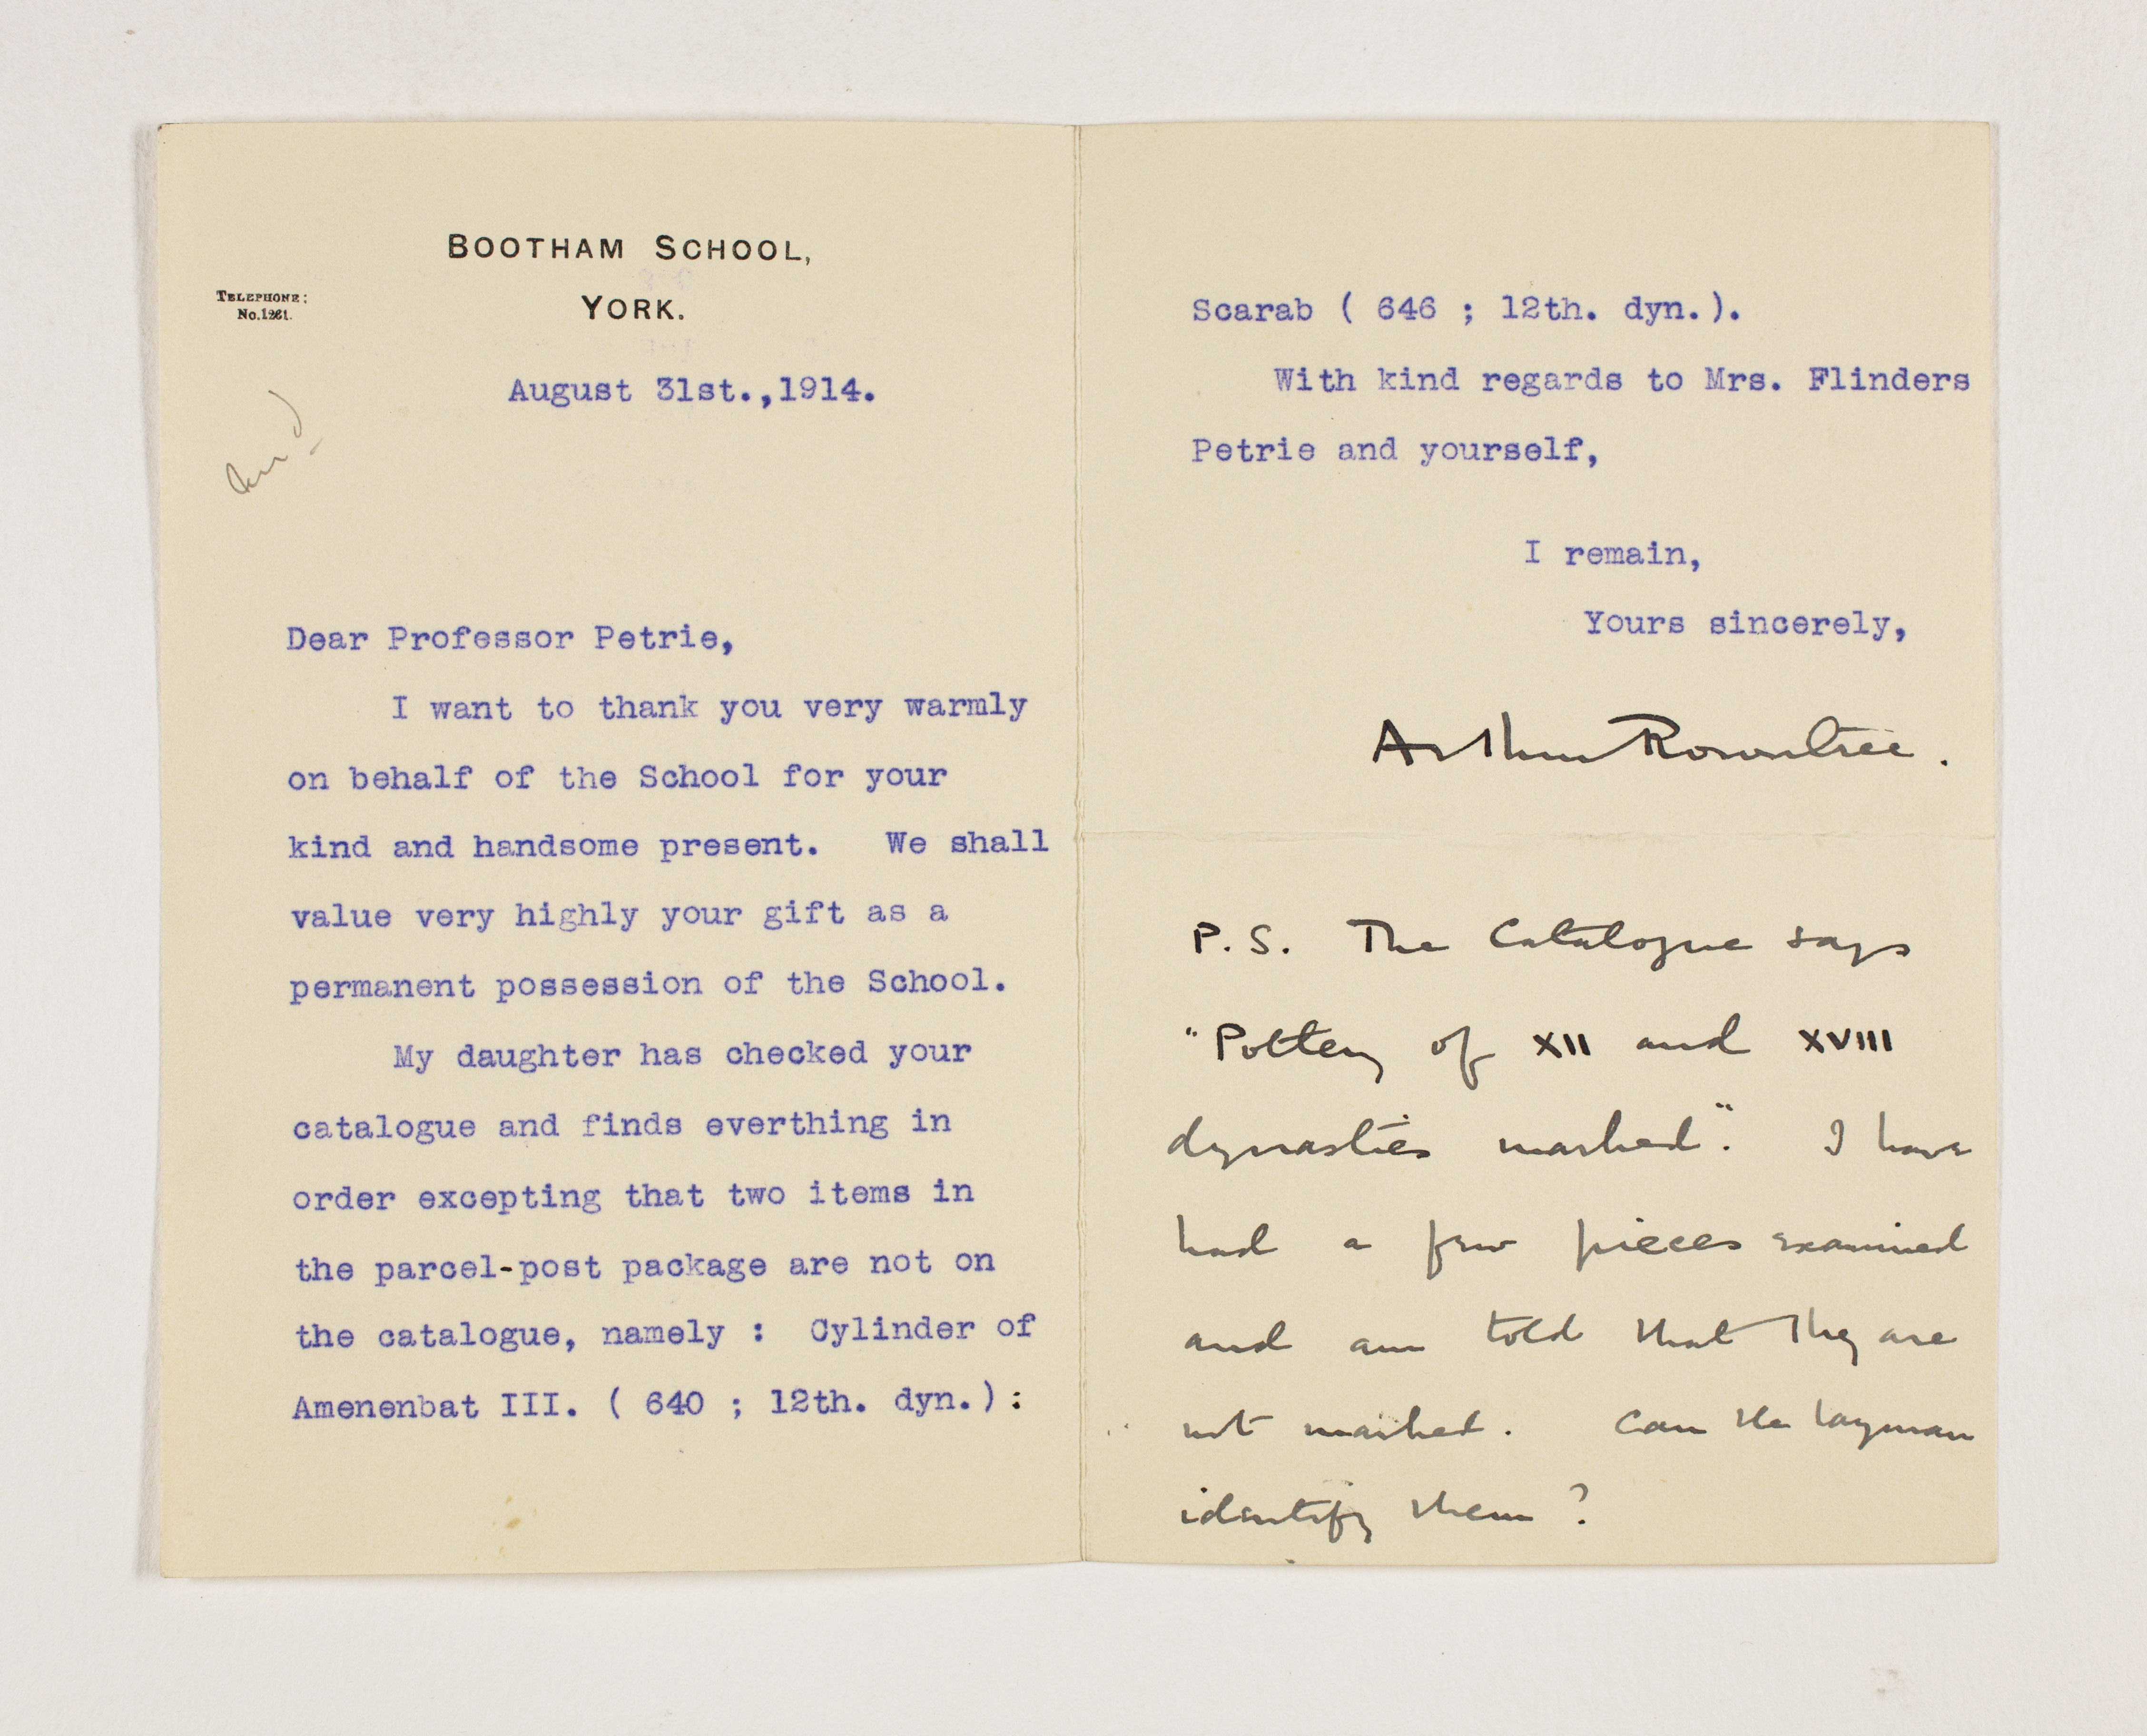 BOOTHAM SCHOOL,
TELEPHONE:
No. 1261.
YORK.
August 31st.,1914.
Dear Professor Petrie,
I want to thank you very warmly
on behalf of the School for your
kind and handsome present. We shall
value very highly your gift as a
permanent possession of the School.
My daughter has checked your
catalogue and finds everthing in
order excepting that two items in
the parcel-post package are not on
the catalogue, namely : Cylinder of
Amenenbat III. ( 640 ; 12th. dyn.) :
Scarab ( 646 ; 12th. dyn.).
With kind regards to Mrs. Flinders
Petrie and yourself,
I remain,
Yours sincerely,
Arthur Rowntree.
P.S. The Catalogue says
"Pottery of XII and XVIII
dynasties marked". I have
had a few pieces examined
and am told that they are
not marked. Can the layman
identify them?